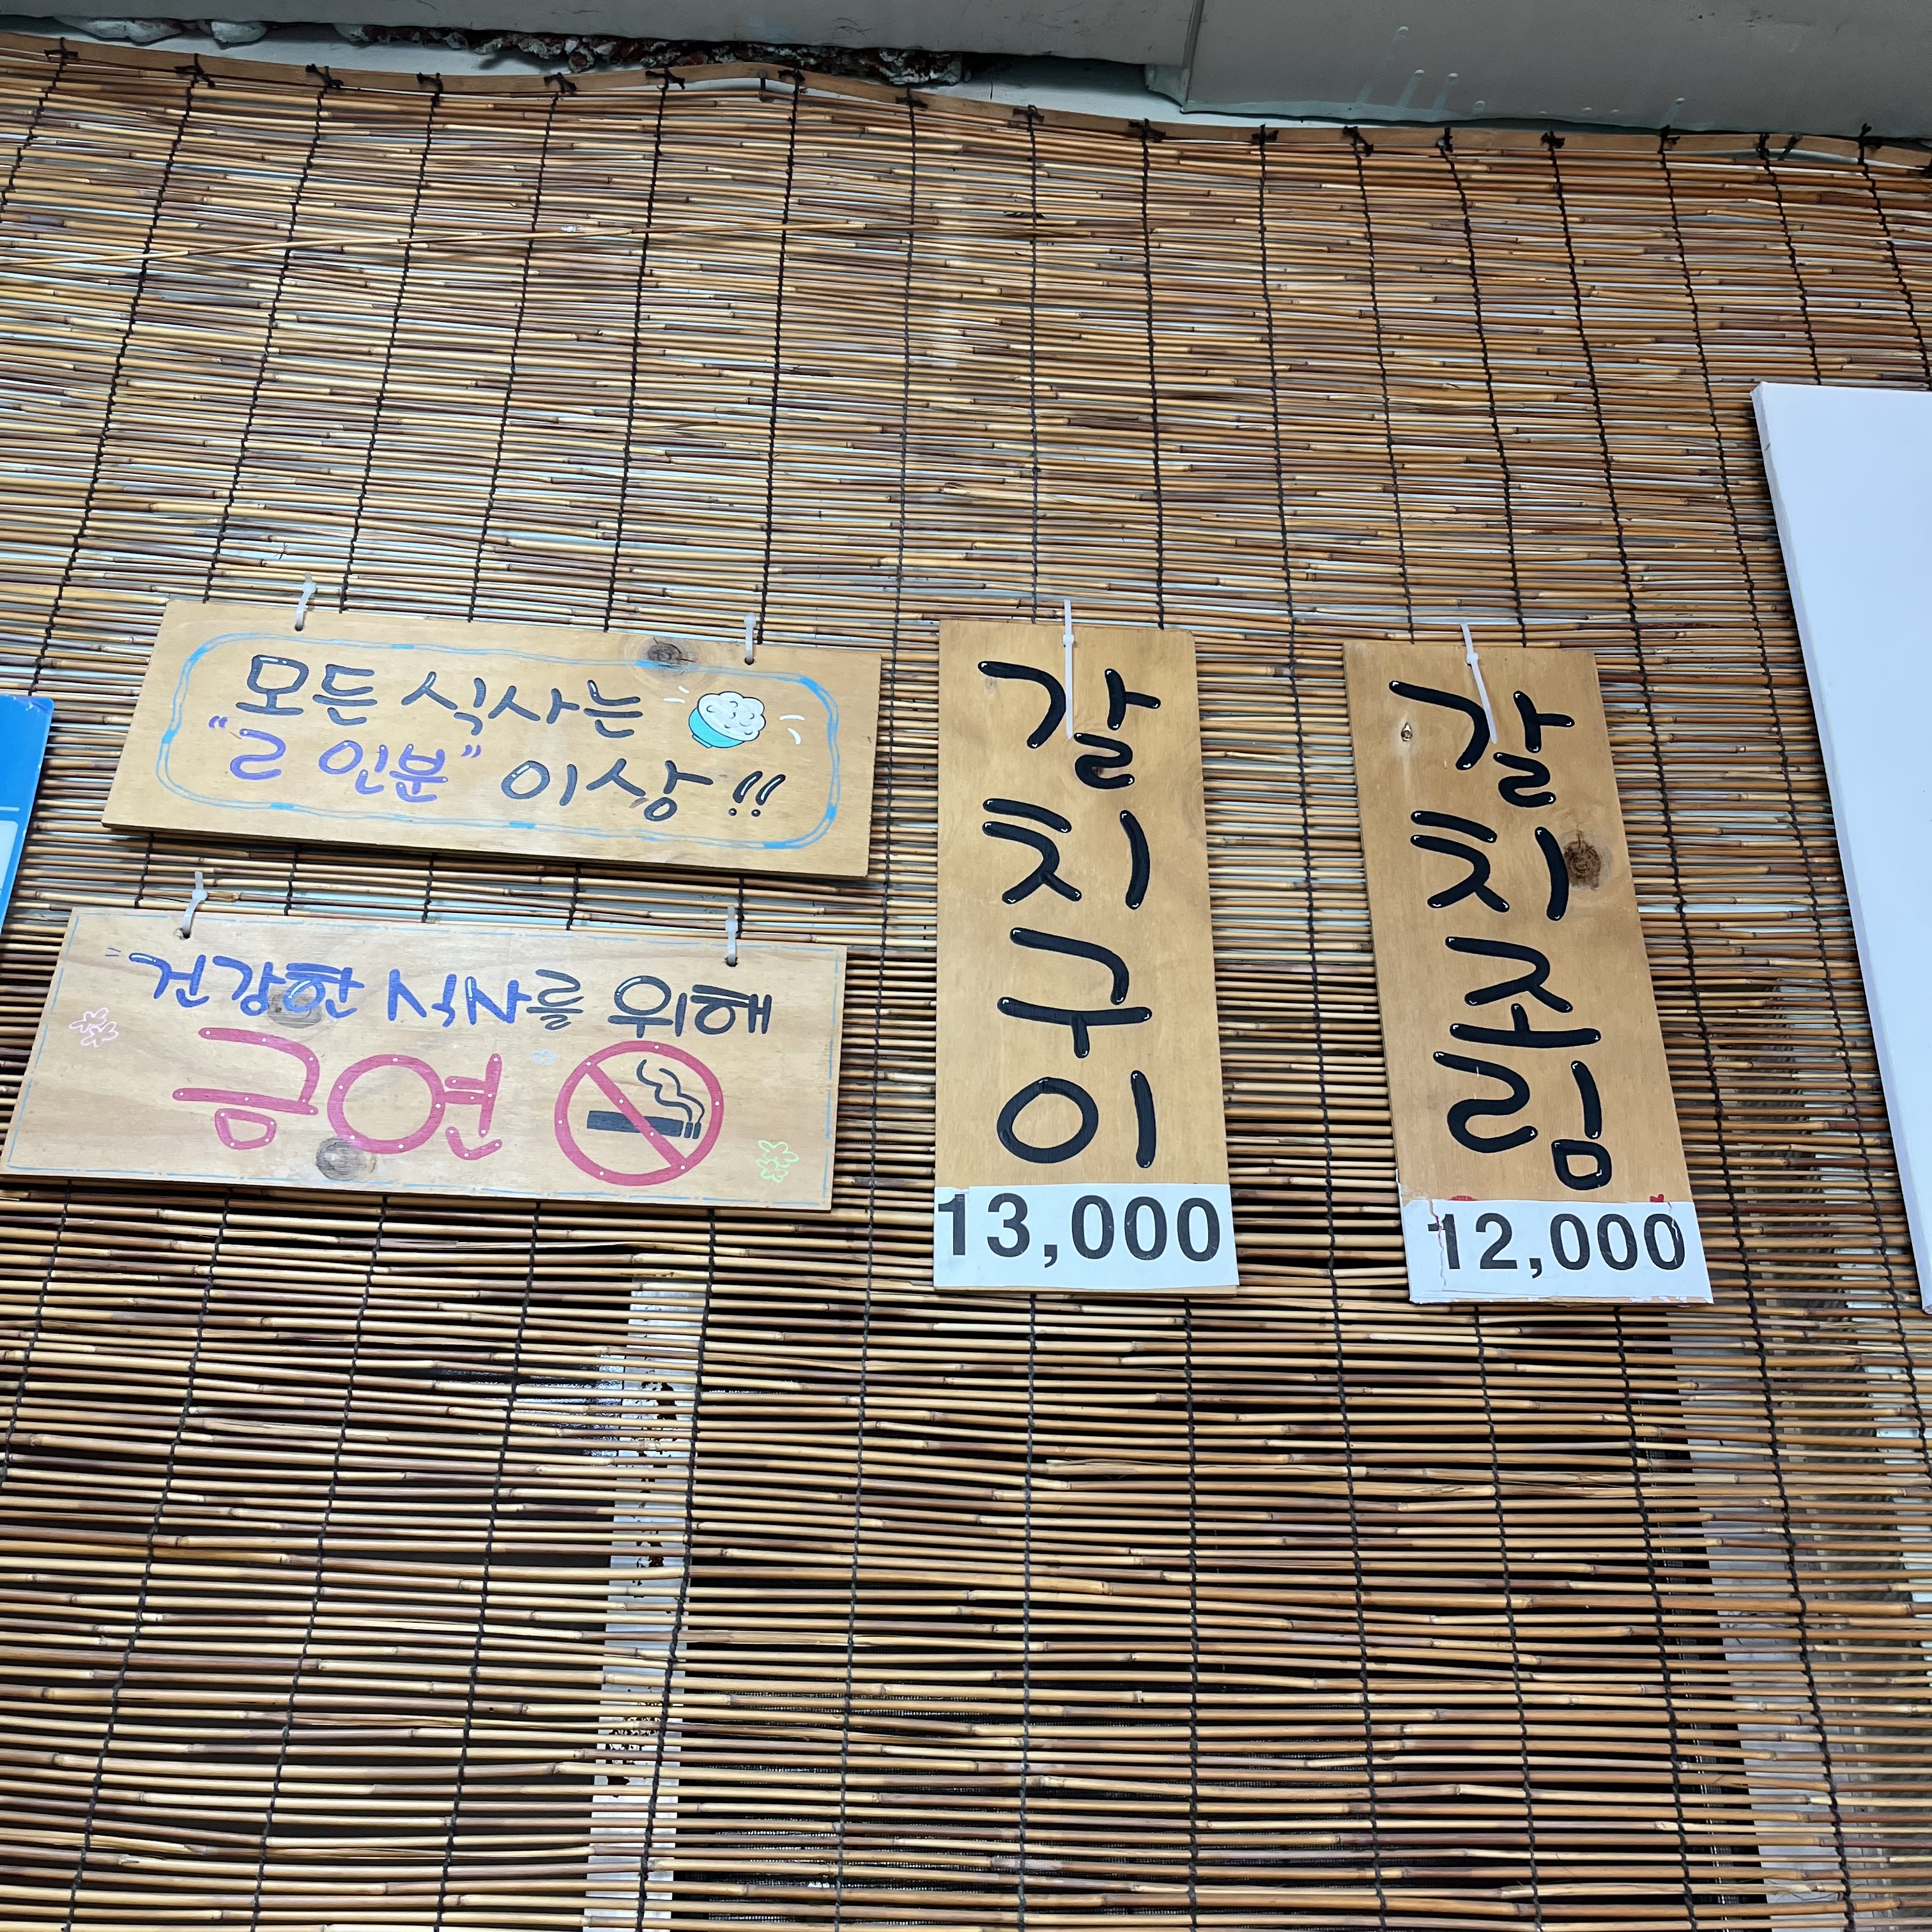 모든 식사는
"2 인분" 이상!!
"건강한 식사를 위해
금연
갈치구이
13,000
갈치조림
12,000